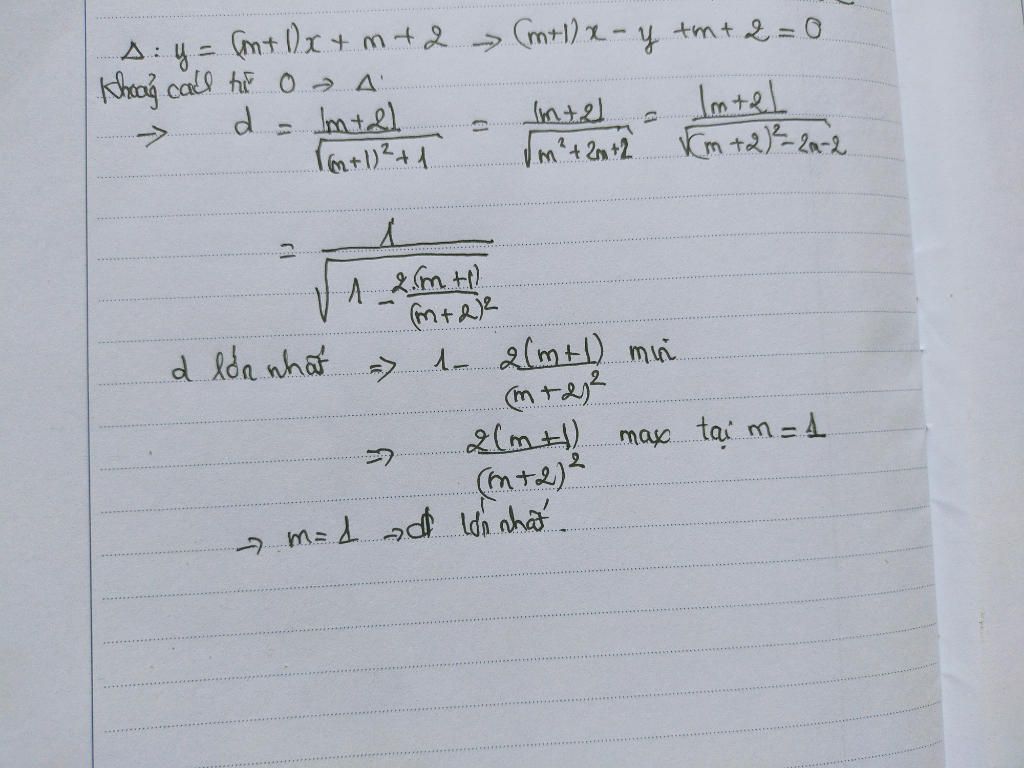 Δ: y = (m+1)x + m + 2 → (m+1)x - y + m + 2 = 0
Khoảg cách từ O → Δ
→ d = |m+2| / √((m+1)² + 1) = |m+2| / √(m² + 2m + 2) = |m+2| / √((m+2)² - 2m - 2)
= 1 / √(1 - 2.(m+1) / (m+2)²)
d lớn nhất => 1 - 2(m+1) / (m+2)² min
=> 2(m+1) / (m+2)² max tại m = 1
→ m = 1 → d lớn nhất.